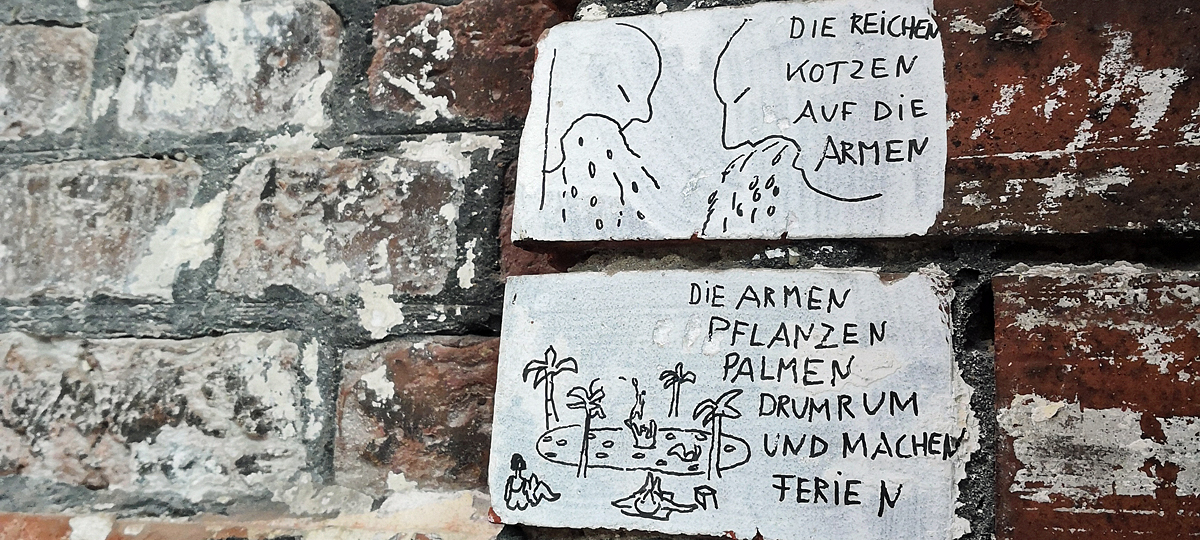 DIE REICHEN
KOTZEN
AUF DIE
ARMEN
DIE ARMEN
PFLANZEN
PALMEN
DRUMRUM
UND MACHEN
FERIEN